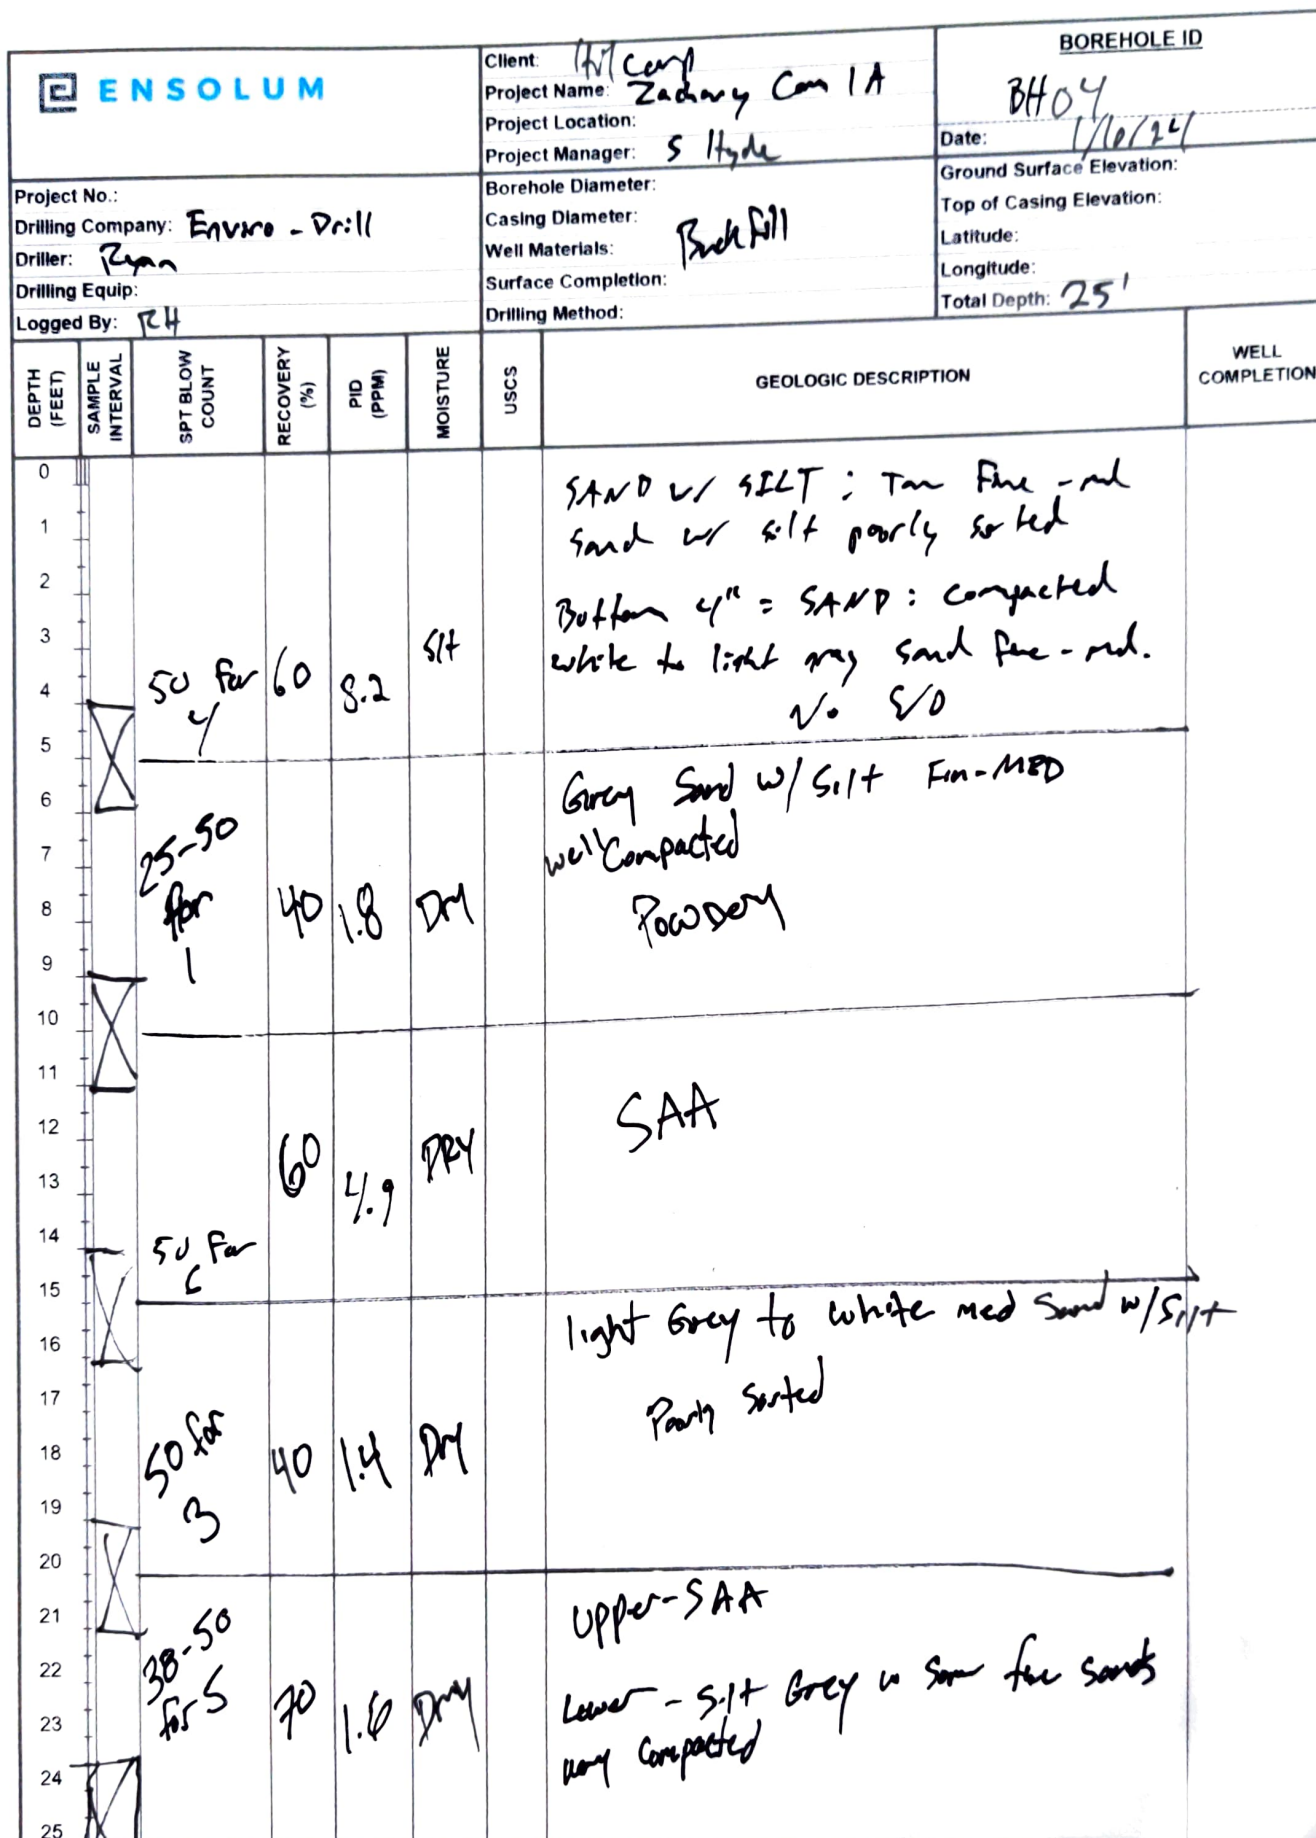 ENSOLUM
Client: Hilcorp
Project Name: Zachary Com 1A
Project Location:
Project Manager: S Hyde
BOREHOLE ID
BH04
Date:
Project No.:
Drilling Company: Enviro-Drill
Driller: Ryan
Drilling Equip:
Logged By: RH
Borehole Diameter:
Casing Diameter:
Well Materials: Backfill
Surface Completion:
Drilling Method:
Ground Surface Elevation:
Top of Casing Elevation:
Latitude:
Longitude:
Total Depth: 25'
DEPTH (FEET)
SAMPLE INTERVAL
SPT BLOW COUNT
RECOVERY (%)
PID (PPM)
MOISTURE
USCS
GEOLOGIC DESCRIPTION
WELL COMPLETION
0
SAND w/ SILT : Tan Fine-md
1
Sand w/ silt poorly sorted
2
Bottom 4" = SAND : Compacted
3
Slt
white to light gray sand fine-md.
4
50 for 4
60
8.2
No S/O
5
Grey Sand w/ Silt Fin-MED
6
well Compacted
7
25-50 for 1
8
40
1.8
Dry
Powdery
9
10
11
SAA
12
60
DRY
13
4.9
14
50 For 6
15
light Grey to white med Sand w/ Silt
16
17
Poorly Sorted
18
50 for 3
40
1.4
Dry
19
20
Upper-SAA
21
38-50 for 5
22
70
1.6
Dry
Lower - Silt Grey w some fine sands
23
very Compacted
24
25